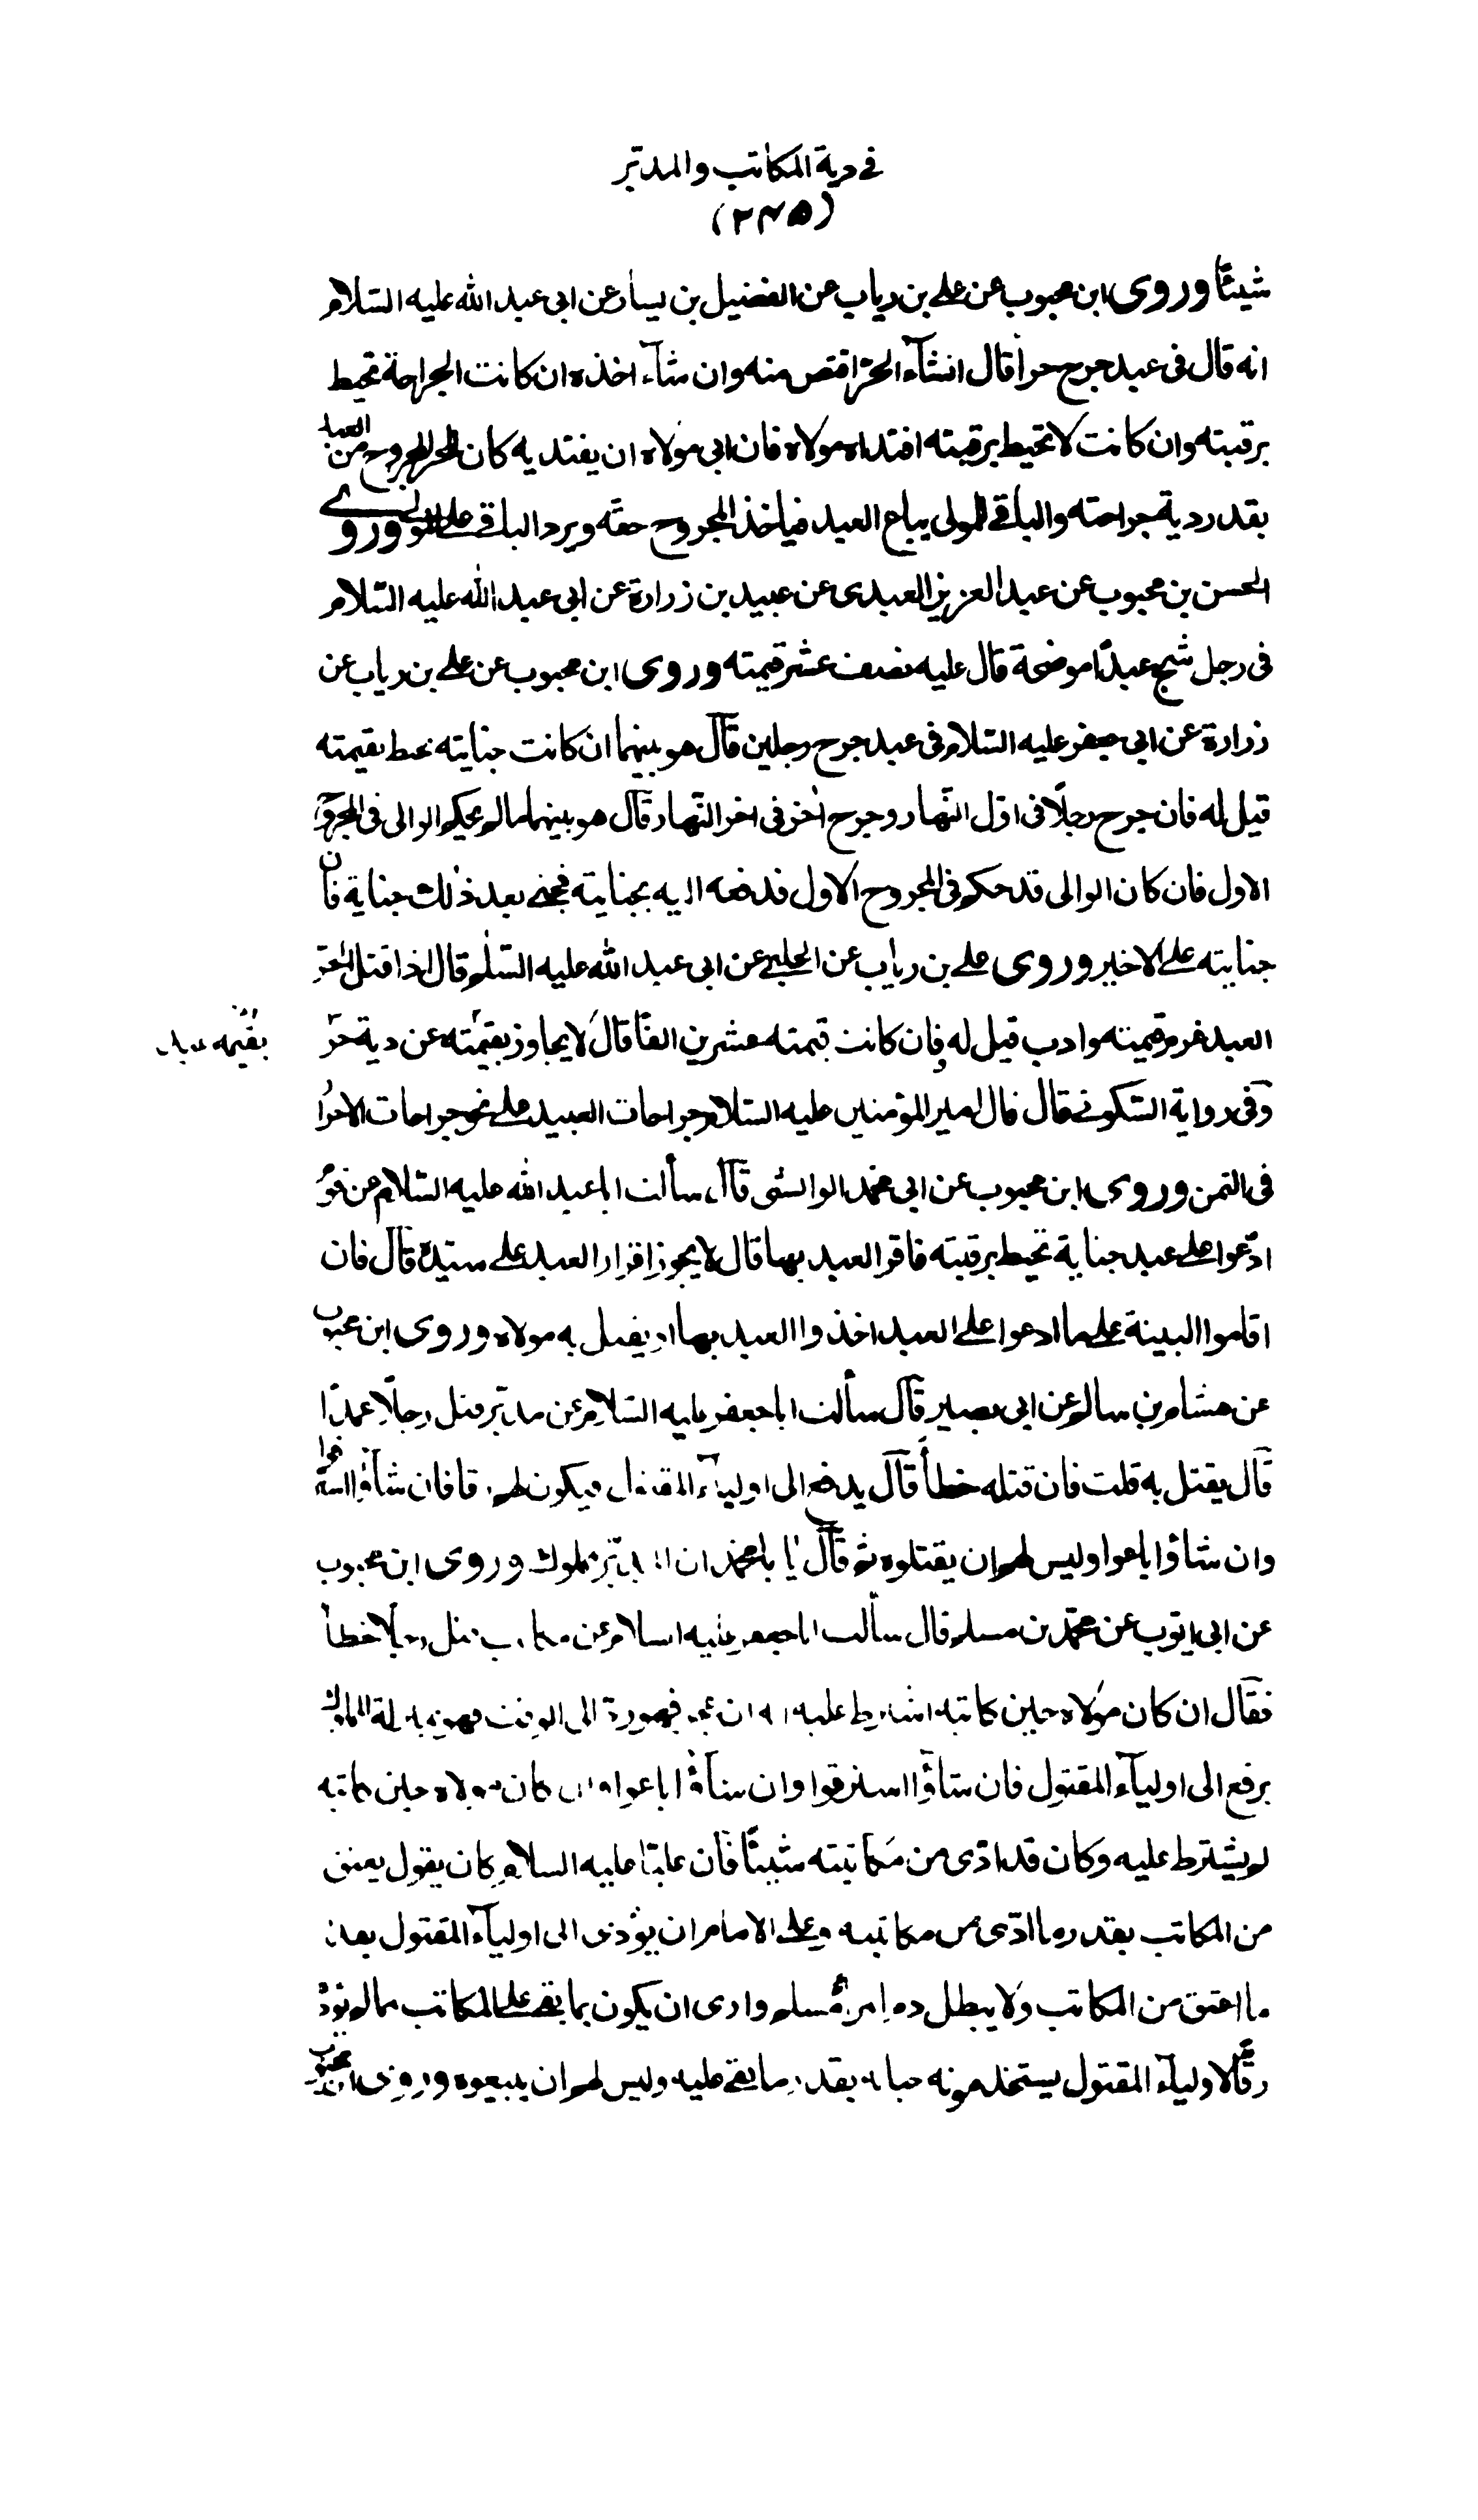 في دية المكاتب والمدبّر
(٢٣٥)
شيئًا وروى ابن محبوب عن على بن رياب عن الفضيل بن يسار عن ابى عبد الله عليه السّلام
انه قال فى عبد جرح حراً قال انشآء الحرّ اقتص منه وان شآء اخذه ان كانت الجراحة تحيط
برقبته وان كانت لا تحيط برقبته افتداه مولاه فان ابى مولاه ان يفتديه كان للحر المجروح من العبد
بقدر دية جراحته والباقي للمولى يباع العبد فياخذ المجروح حقّه ويرد الباقي على المولى وروى
الحسن بن محبوب عن عبد العزيز العبدى عن عبيد بن زرارة عن ابى عبد الله عليه السّلام
فى رجل شج عبدًا موضحة قال عليه نصف عشر قيمته وروى ابن محبوب عن على بن رياب عن
زرارة عن ابى جعفر عليه السّلام فى عبد جرح رجلين قآل هو بينهما ان كانت جنايته تحيط بقيمته
قيل له فان جرح رجلًا فى اوّل النّهار وجرح اخر فى اخر النّهار قآل هو بينهما مالم يحكم الوالى فى المجروح
الاول فان كان الوالى قد حكم فى المجروح الاول فدفعه اليه بجنايته فجنى بعد ذلك جناية فان
جنايته على الاخير وروى على بن رياب عن الحلبى عن ابى عبد الله عليه السّلم قال اذا قتل الحرّ
العبد غرم قيمته وادب قيل له فان كانت قيمته عشرين الفًا قال لا يجاوز بقيمته عن دية حرّ
بقيمه عبد
وفى رواية السّكونى قال قال امير المؤمنين عليه السّلام جراحات العبيد على نحو جراحات الاحرار
فى الثمن وروى ابن محبوب عن ابى محمّد الوابشى قآل سألت ابا عبد الله عليه السّلام عن قوم
ادّعوا على عبد جناية تحيط برقبته فاقر العبد بها قال لا يجوز اقرار العبد على سيّده قآل فان
اقاموا البينة على ما ادعوا على العبد اخذوا العبد بها او يفتديه مولاه وروى ابن محبوب
عن هشام بن سالم عن ابى بصير قآل سألت ابا جعفر عليه السّلام عن مدبّر قتل رجلًا عمدًا
قآل يقتل به قلت فان قتله خطأ قآل يدفع الى اوليآء المقتول فيكون لهم رقا فان شآؤا استرقوا
وان شاؤا باعوا وليس لهم ان يقتلوه ثم قآل يا با محمّد ان المدبّر مملوك وروى ابن محبوب
عن ابى ايّوب عن محمّد بن مسلم قال سألت ابا جعفر عليه السلام عن مكاتب قتل رجلًا خطأ
فقآل ان كان مولاه حين كاتبه اشترط عليه انه ان عجز فهو رد الى الرق فهو بمنزلة المملوك
يرفع الى اوليآء المقتول فان شاؤا استرقوا وان شاؤا باعوا وان كان مولاه حين كاتبه
لم يشترط عليه وكان قد ادّى من مكاتبته شيئًا فان عليّا عليه السلام كان يقول يعتق
من المكاتب بقدر ما ادّى من مكاتبته وعلى الامام ان يؤدى الى اوليآء المقتول بقدر
ما اعتق من المكاتب ولا يبطل دم امرئ مسلم وارى ان يكون بما بقى على المكاتب مما لم يؤدّ
رقًّا لاوليآء المقتول يستخدمونه حياته بقدر ما بقى عليه وليس لهم ان يبيعوه وروى ابن محبوب